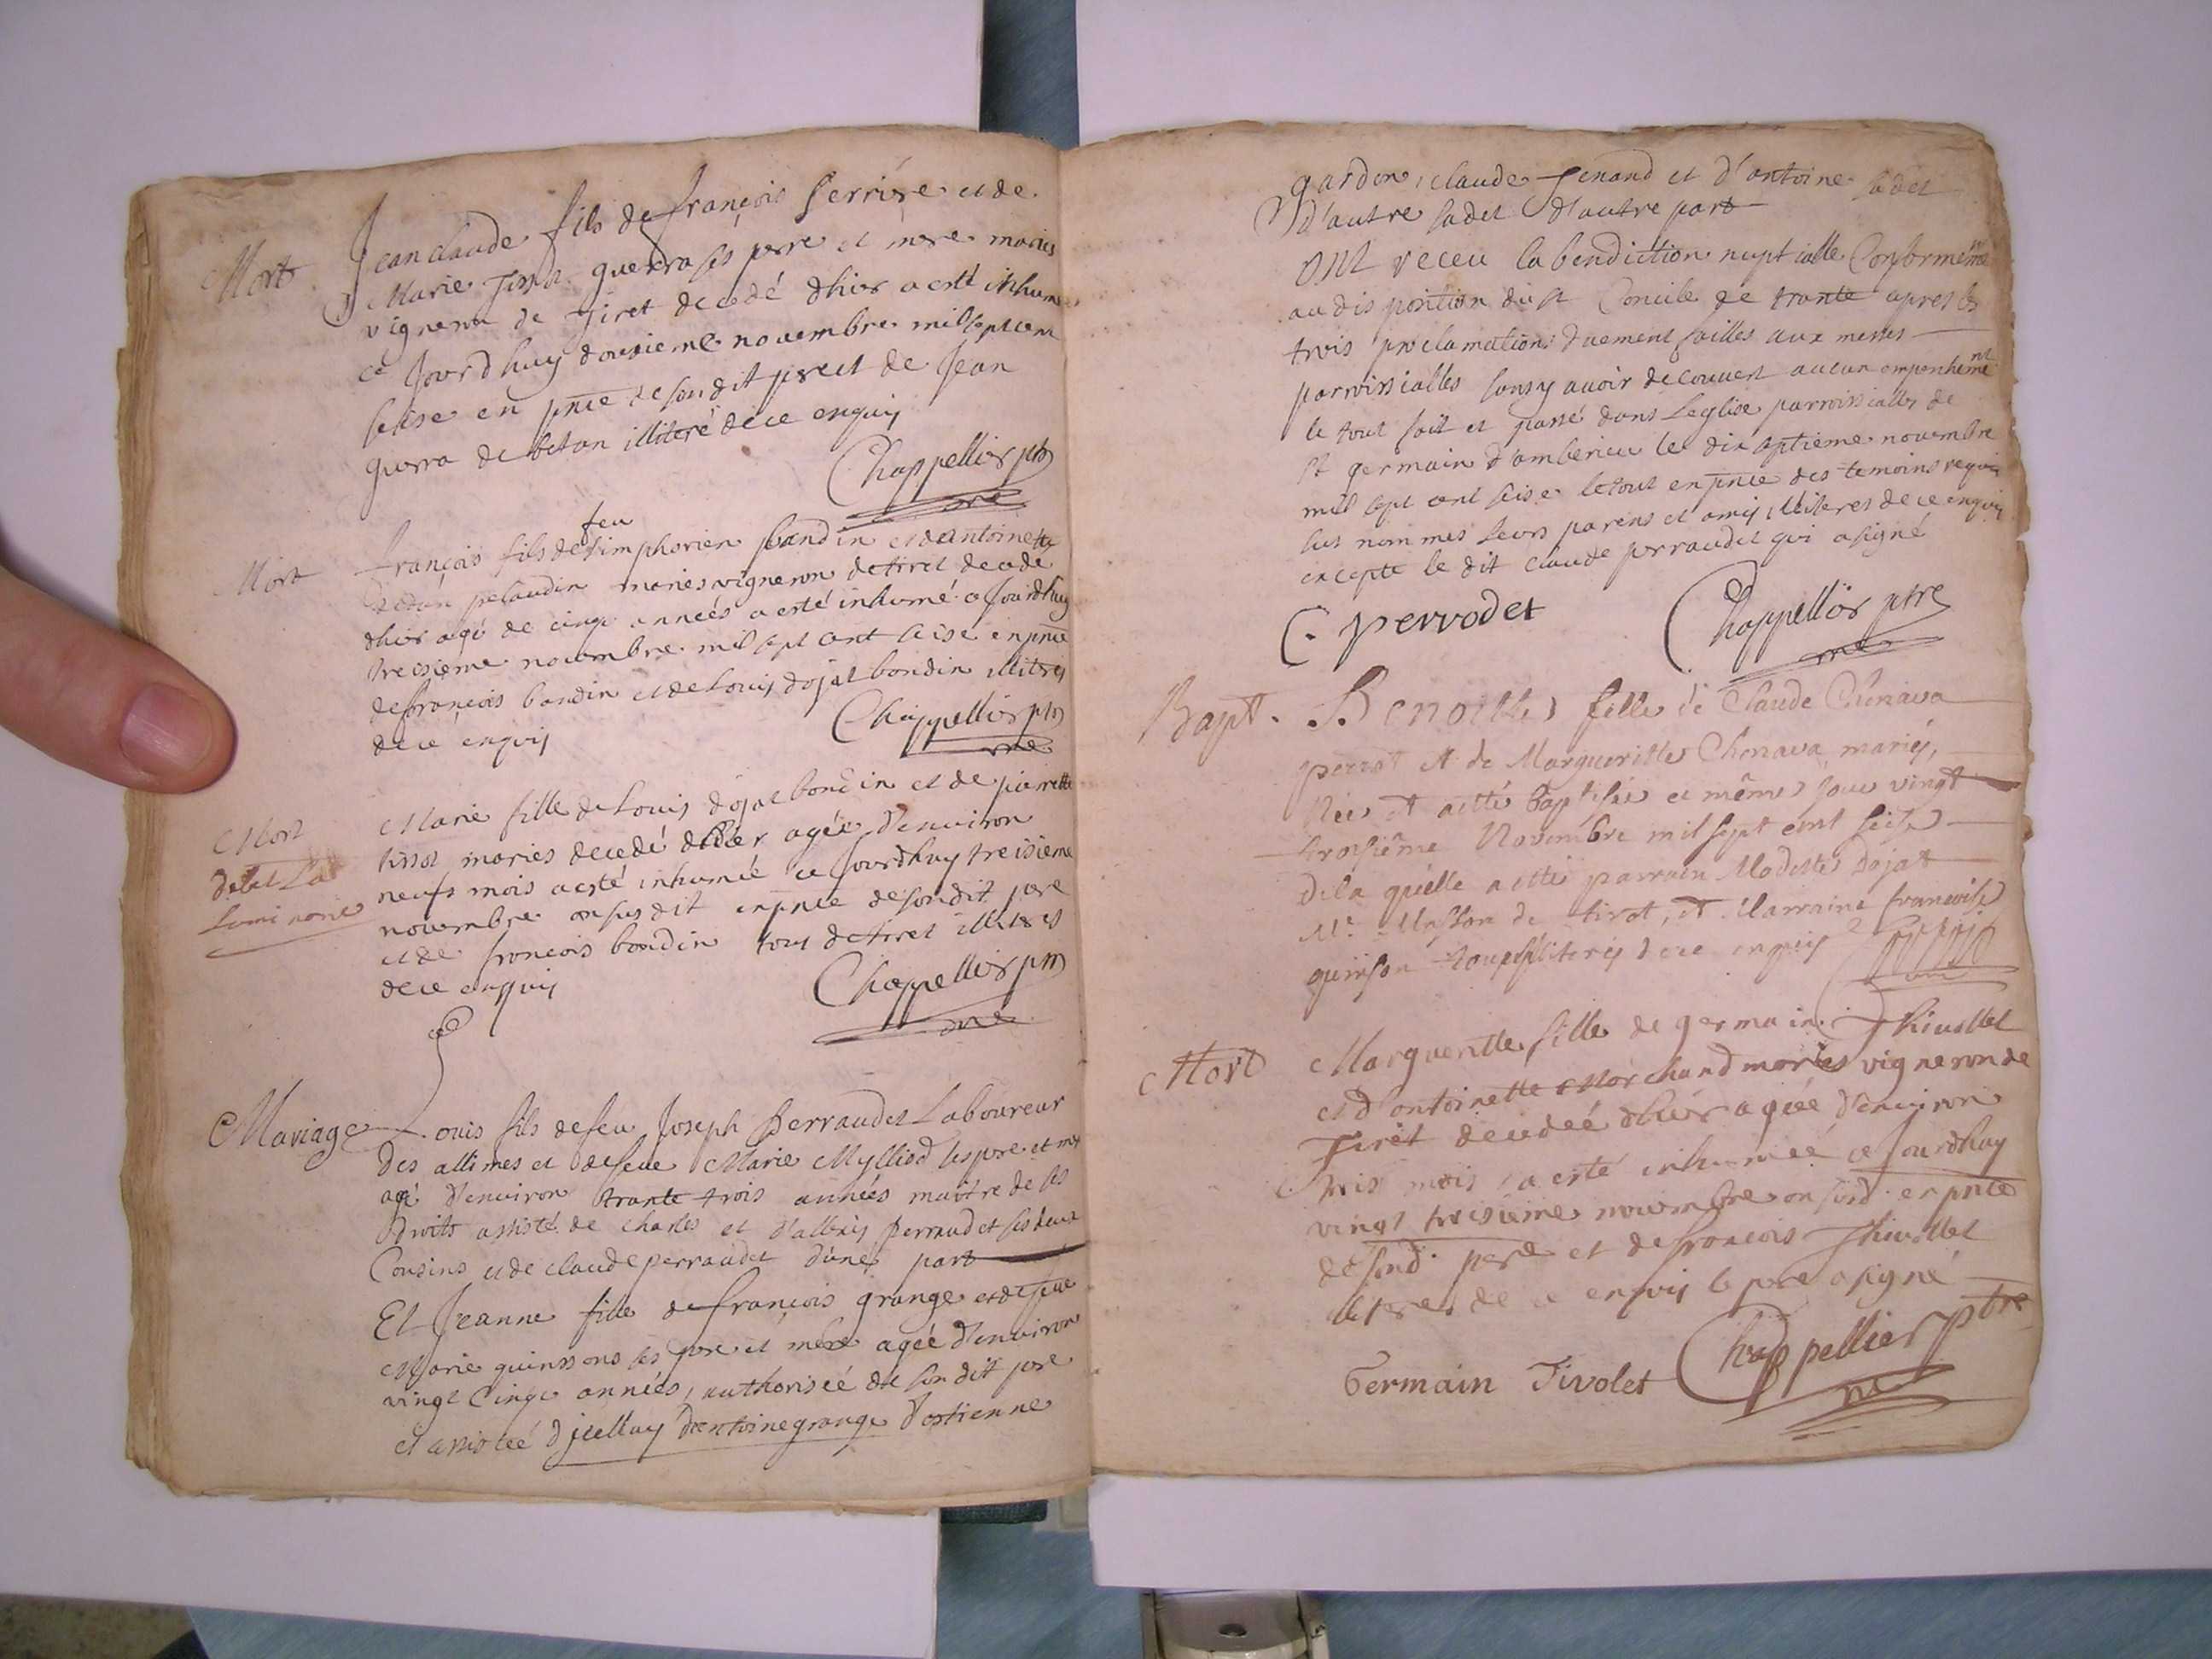 Mort
Jean claude fils de françois Perrière et de
Marie Tissot guerra ses perre et mere maries
vigneron de Tiret decedé dhier a esté inhumé
ce Jourdhuy dousieme novembre mil sept cent
seise en pnce de son dit pere et de Jean
guerra de betan illiteré de ce enquis
Chappellier ptre
Mort
feu
françois fils de simphorien bandin et dantoinette
pelaudin maries vigneron de tiret decede
dhier agé de cinq années a esté inhumé ce Jourdhuy
treisieme novembre mil sept cent seise en pnce
de françois bondin et de Louis dojat bondin illitres
de ce enquis
Chappellier ptre
Mort
Marie fille de Louis dojat bondin et de pierrette
tissot maries decedé dhier agée d'environ
neufs mois a esté inhumée ce Jourdhuy treisieme
novembre an susdit en pnce de son dit pere
et de francois bondin tous de tiret illitres
de ce enquis
Chappellier ptre
Mariage
Louis fils de feu Joseph Perraudet Laboureur
Des allimes et de feue Marie Mylliod ses pere et mere
agé d'environ trante trois années maitre de ses
droits assisté de Charles et d'alluis Perraudet ses deux
Cousins et de claude perraudet d'une part
Et Jeanne fille de françois grange et de feue
Marie quinssons ses pere et mere agée d'environ
vingt cinq années, authorisée de son dit pere
et assistée d'jcelluy d'antoine grange d'estienne
gardon, claude Tenand et d'antoine sadet
d'autre sadet d'autre part
ont receu la bendiction nuptialle Conformément
au disposition du st Concile de trante apres les
trois proclamations duement failles aux messes
parroissialles sans y avoir decouvert aucun empenhement
le tout fait et passé dans Leglise parroissialles de
st germain d'amberieu le dix septieme novembre
mil sept cent seise le tout en pnce des temoins requis
sus nommes leurs parens et amis illiteres de ce enquis
excepte le dit claude perraudet qui a signé
C. perrodet
Chappellier ptre
Bapt.
Benoitte fille de Claude Chenava
perrot et de Margueritte Chenava mariés,
Née et a etté baptisée ce même jour vingt
troisiême Novembre mil sept cent seise
De la quelle a etté parrain Modeste Dojat
Me Masson de tiret, et Marraine francoise
quinson tous illiterés de ce enquis
Mort
Marguerette fille de germain Thivollet
et d'antoinette Marchand maries vigneron de
Tiret decedeé dhier agée d'environ
trois mois a esté inhumeé ce Jourdhuy
vingt troisieme novembre an susd. en pnce
de sond. pere et de francois Thivollet
de ce enquis le pere a signé
Germain Tivolet
Chappellier ptre